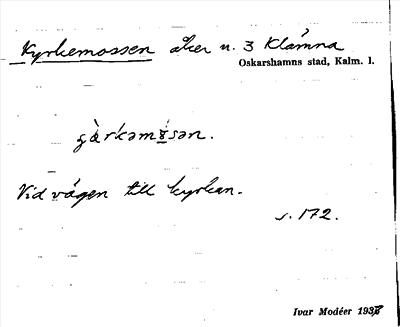 Kyrkemossen åker u. 3 Klämna
Oskarshamns stad, Kalm. l.
çàrkəmósən.
Vid vägen till kyrkan.
s. 172.
Ivar Modéer 1937